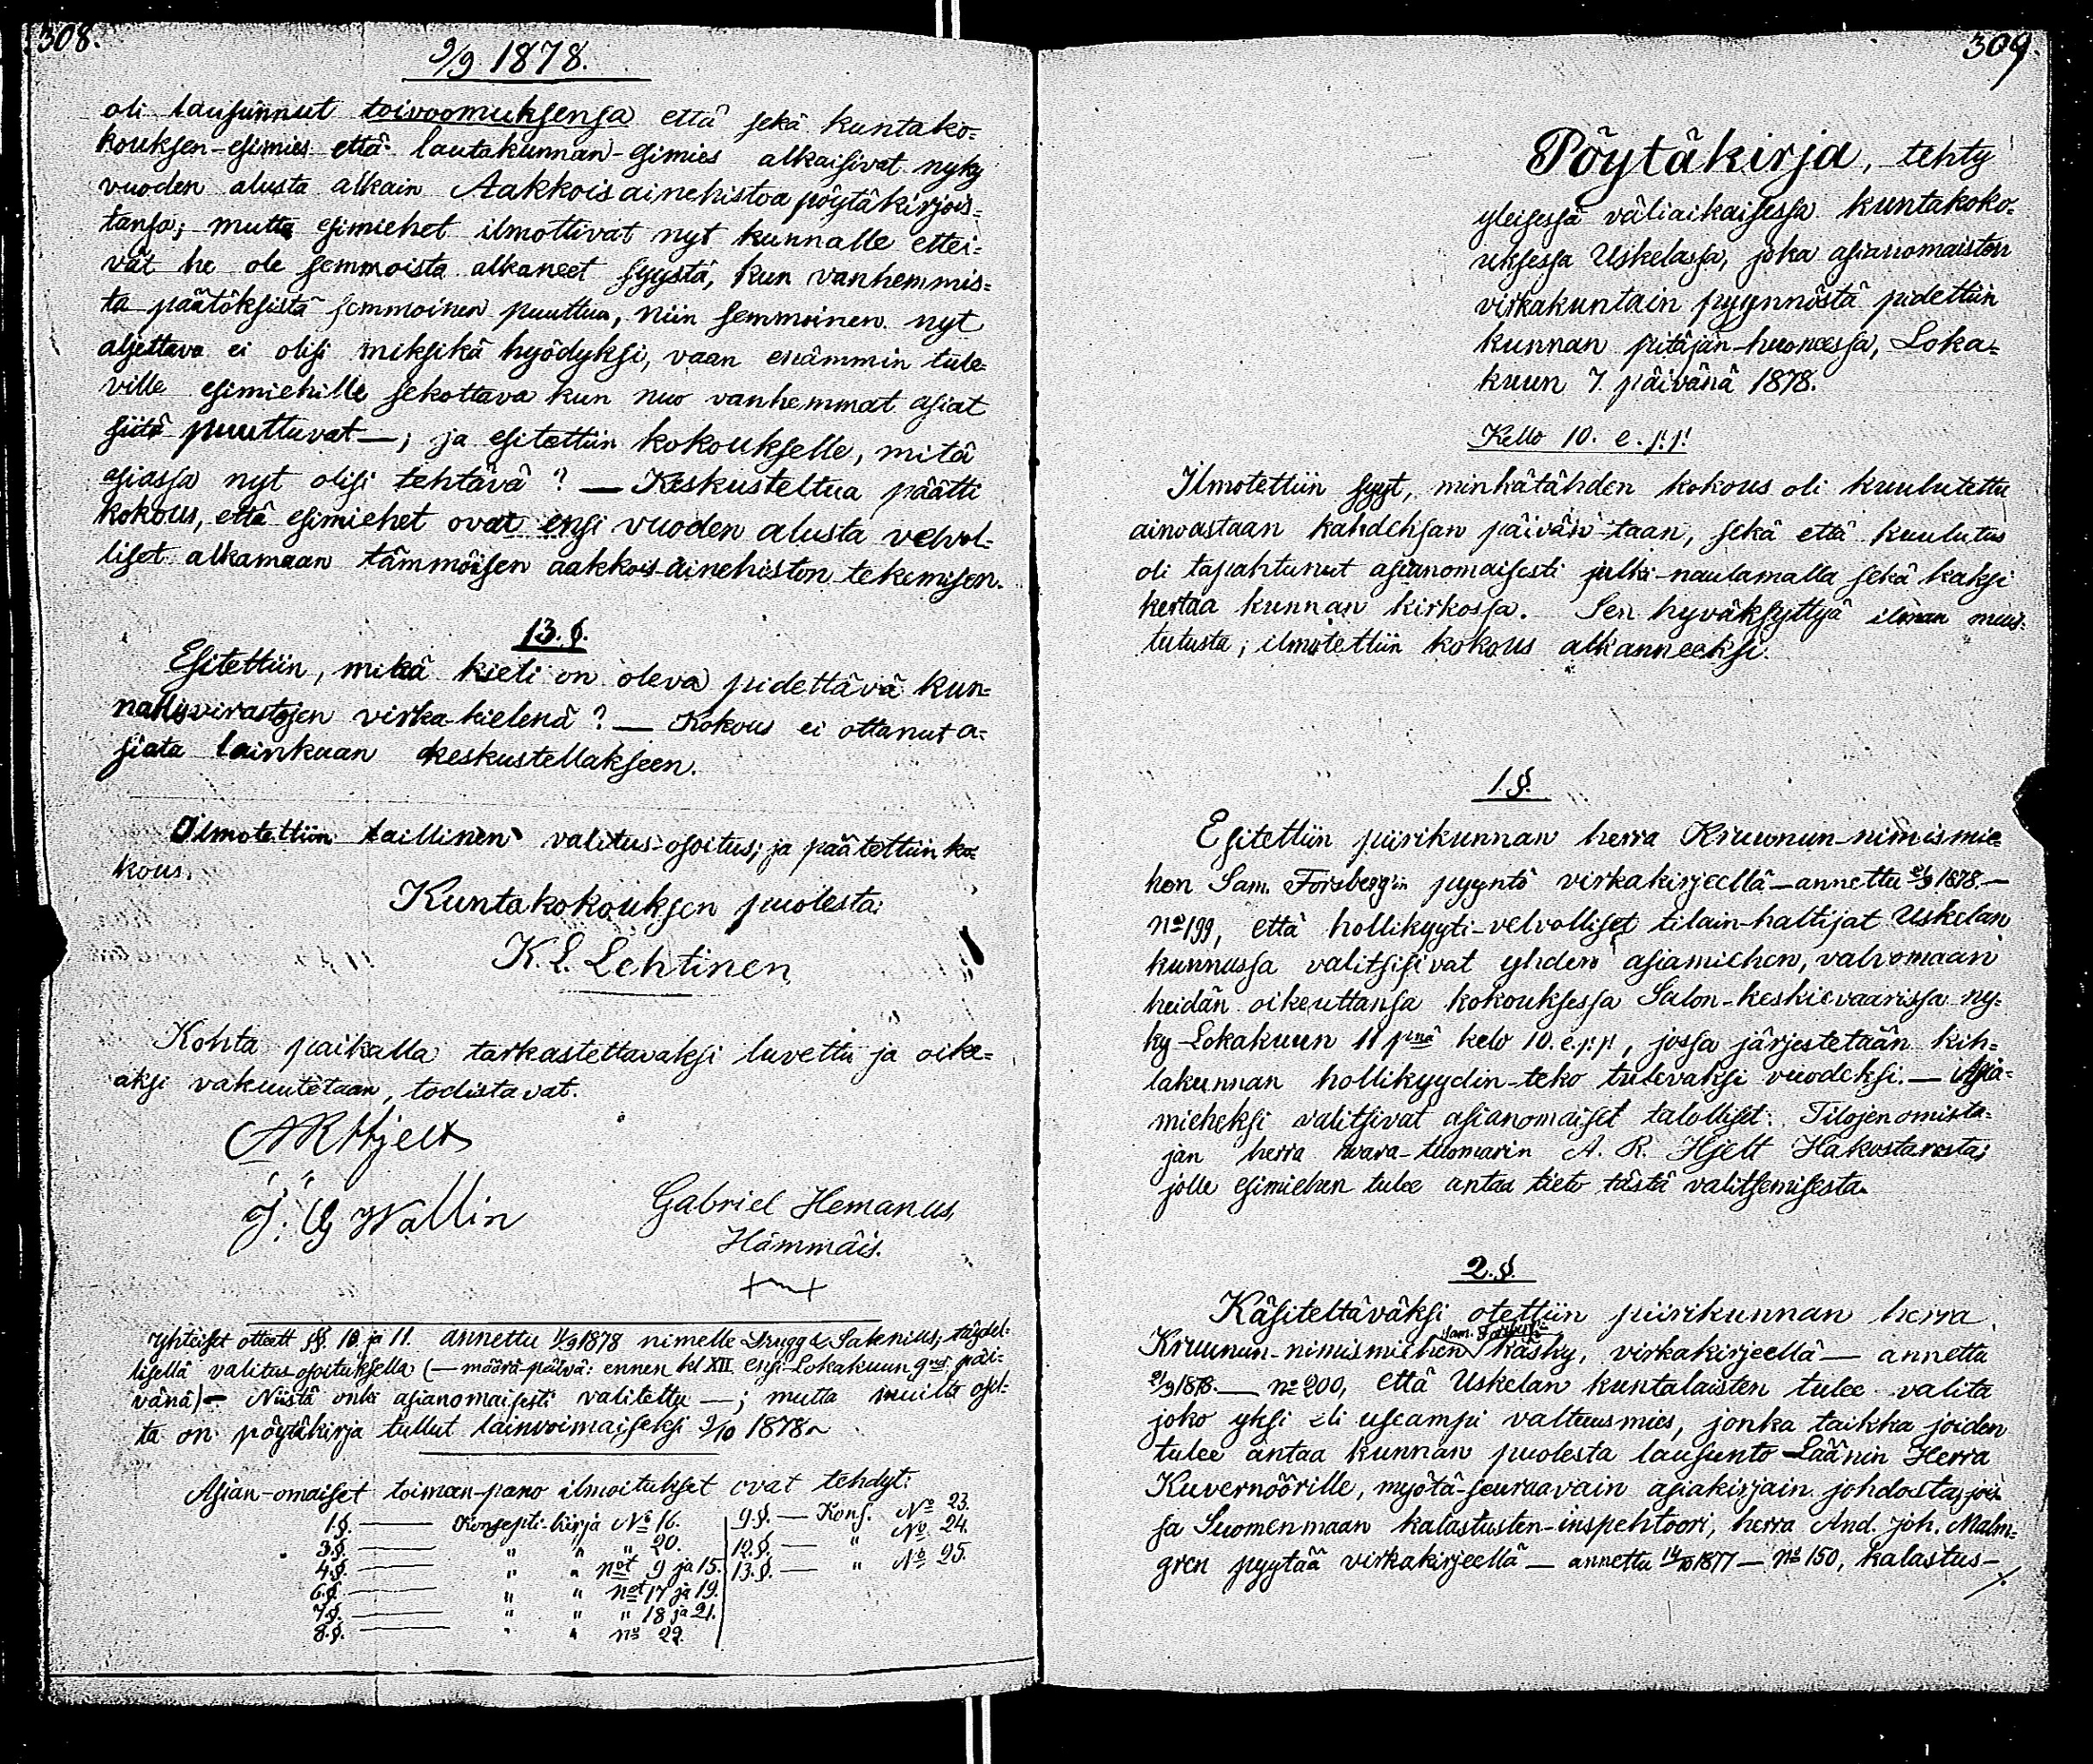 308.
9/9 1878.
oli lausunnut toivoomuksensa että sekä kuntako-
kouksen-esimies että lautakunnan-esimies alkaisivat nyky
vuoden alusta alkain Aakkois ainehistoa pöytäkirjois-
tansa; mutta esimiehet ilmottivat nyt kunnalle ettei-
vät he ole semmoista alkaneet syystä, kun vanhemmis-
ta päätöksistä semmoinen puuttuu, niin semmoinen nyt
aljettava ei olisi miksikä hyödyksi, vaan enämmin tule-
ville esimiehille sekottava kun nuo vanhemmat asiat
siitä puuttuvat —; ja esitettiin kokoukselle, mitä
asiassa nyt olisi tehtävä? — Keskusteltua päätti
kokous, että esimiehet ovat ensi vuoden alusta velvol-
liset alkamaan tämmöisen aakkois-ainehiston tekemisen.
13. §.
Esitettiin, mikä kieli on oleva pidettävä kun-
nallisvirastojen virka-kielenä? — Kokous ei ottanut a-
siata lainkaan keskustellakseen.
Ilmotettiin laillinen valitus-osoitus; ja päätettiin ko-
kous.
Kuntakokouksen puolesta:
K. E. Lehtinen
Kohta paikalla tarkastettavaksi luvettu ja oike-
aksi vakuutetaan, todistavat.
A R Hjelt
J. G Wallin
Gabriel Hemanus,
Hämmäis.
Yhteiset otteet §§. 10 ja 11. annettu 11/9 1878 nimelle Trugg & Salenius, täydel-
lisellä valitus-osoituksella (— määrä-päivä: ennen kl XII. ensi Lokakuun 9nnä päi-
vänä) — Niistä onki asianomaisesti valitettu —; mutta muilta osil-
ta on pöytäkirja tullut lainvoimaiseksi 9/10 1878
Asian-omaiset toiman-pano ilmoitukset ovat tehdyt:
1.§. — Konsepti-kirja No 16. 9.§. — Kons. No 23.
3.§. — " " " 20. 12.§. — " No 24.
4.§. — " " not 9 ja 15. 13.§. — " No 25.
6.§. — " " not 17 ja 19.
7.§. — " " " 18 ja 21.
8.§. — " " no 22.
309.
Pöytäkirja, tehty
yleisessä väliaikaisessa kuntakoko-
uksessa Uskelassa, joka asianomaisten
virkakuntain pyynnöstä pidettiin
kunnan pitäjän-huoneessa, Loka-
kuun 7. päivänä 1878.
Kello 10. e. p. p.
Ilmotettiin syyt, minkätähden kokous oli kuulutettu
ainoastaan kahdeksan päivän-taan, sekä että kuulutus
oli tapahtunut asianomaisesti julki-naulamalla sekä kaksi
kertaa kunnan kirkossa. Sen hyväksyttyä ilman muis-
tutusta; ilmotettiin kokous alkanneeksi.
1.§.
Esitettiin piirikunnan herra Kruunun-nimismie-
hen Sam. Forsberg'in pyyntö virkakirjeellä — annettu 21/9 1878. —
no 199, että hollikyyti-velvolliset tilain-haltijat Uskelan
kunnassa valitsisivat yhden asiamiehen, valvomaan
heidän oikeuttansa kokouksessa Salon-keskievaarissa ny-
ky-Lokakuun 11 pnä kelo 10. e. p. p., jossa järjestetään kih-
lakunnan hollikyydin-teko tulevaksi vuodeksi. — Asia-
mieheksi valitsivat asianomaiset talolliset: Tilojen omista-
jan herra wara-tuomarin A. R. Hjelt Hakostarosta;
jolle esimiehen tulee antaa tieto tästä valitsemisesta.
2.§.
Käsiteltäväksi otettiin piirikunnan herra
Kruunun-nimismiehen Sam. Forsberg'in käsky, virkakirjeellä — annettu
21/9 1878. — no 200, että Uskelan kuntalaisten tulee valita
joko yksi eli useampi valtuusmies, jonka taikka joiden
tulee antaa kunnan puolesta lausunto Läänin Herra
Kuvernöörille, myötä-seuraavain asiakirjain johdosta, jois-
sa Suomenmaan kalastusten-inspehtoori, herra And. Joh. Malm-
gren pyytää virkakirjeellä — annettu 14/10 1877 — no 150, kalastus-